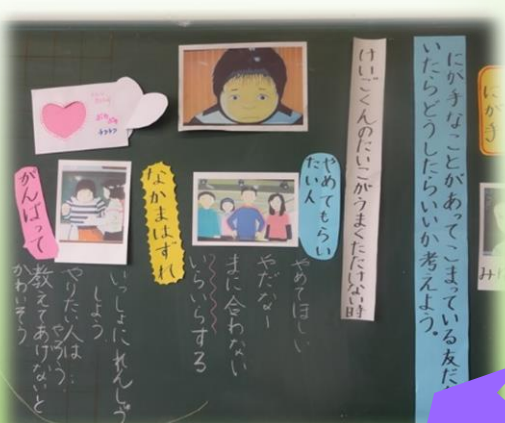 にが手
にが手なことがあってこまっている友だ
いたらどうしたらいいか考えよう。
けいごくんのたいこがうまくたたけない時
やめてもらい
たい人
やめてほしい
やだなー
まに合わない
いらいらする
なかまはずれ
いっしょにれんしゅう
しよう
やりたい人は…
やろう
教えてあげないと
かわいそう
がんばって